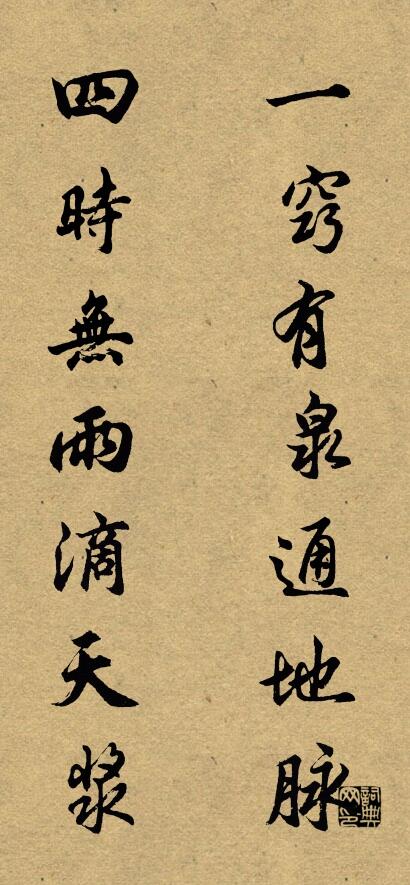 一窍有泉通地脉
四時無雨滴天漿
詞典網